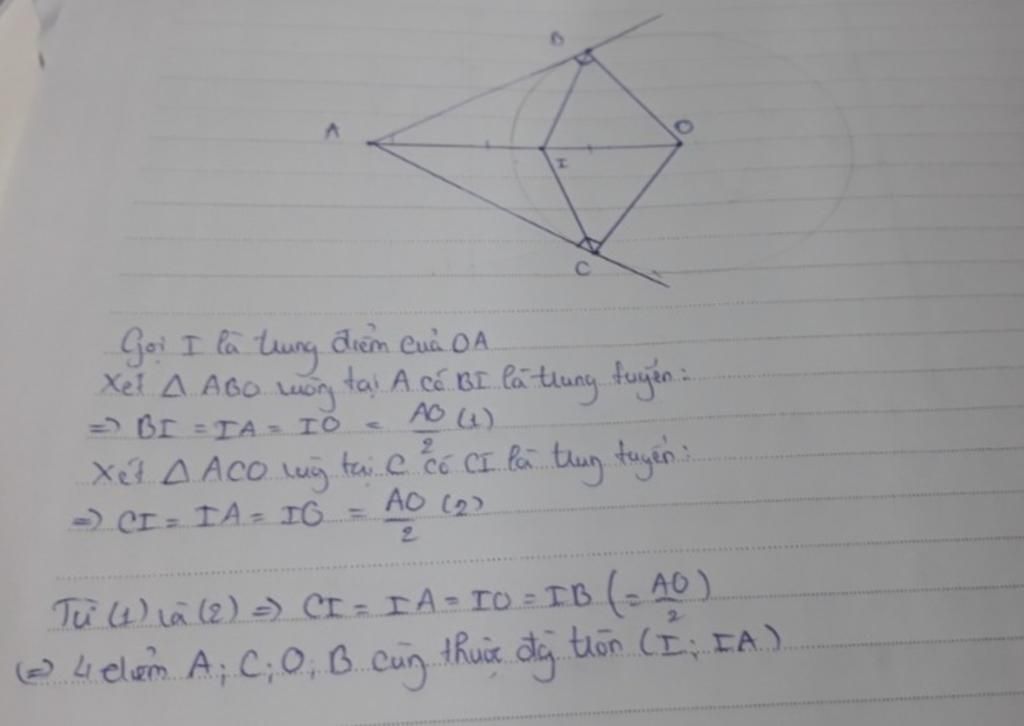 B
A
O
I
C
Gọi I là trung điểm của OA
Xét △ ABO vuông tại A có BI là trung tuyến:
=> BI = IA = IO = AO/2 (1)
Xét △ ACO vug tại C có CI là trug tuyến:
=> CI = IA = IO = AO/2 (2)
Từ (1) và (2) => CI = IA = IO = IB (= AO/2)
(=> 4 điểm A; C; O; B cùng thuộc đg tròn (I; IA)